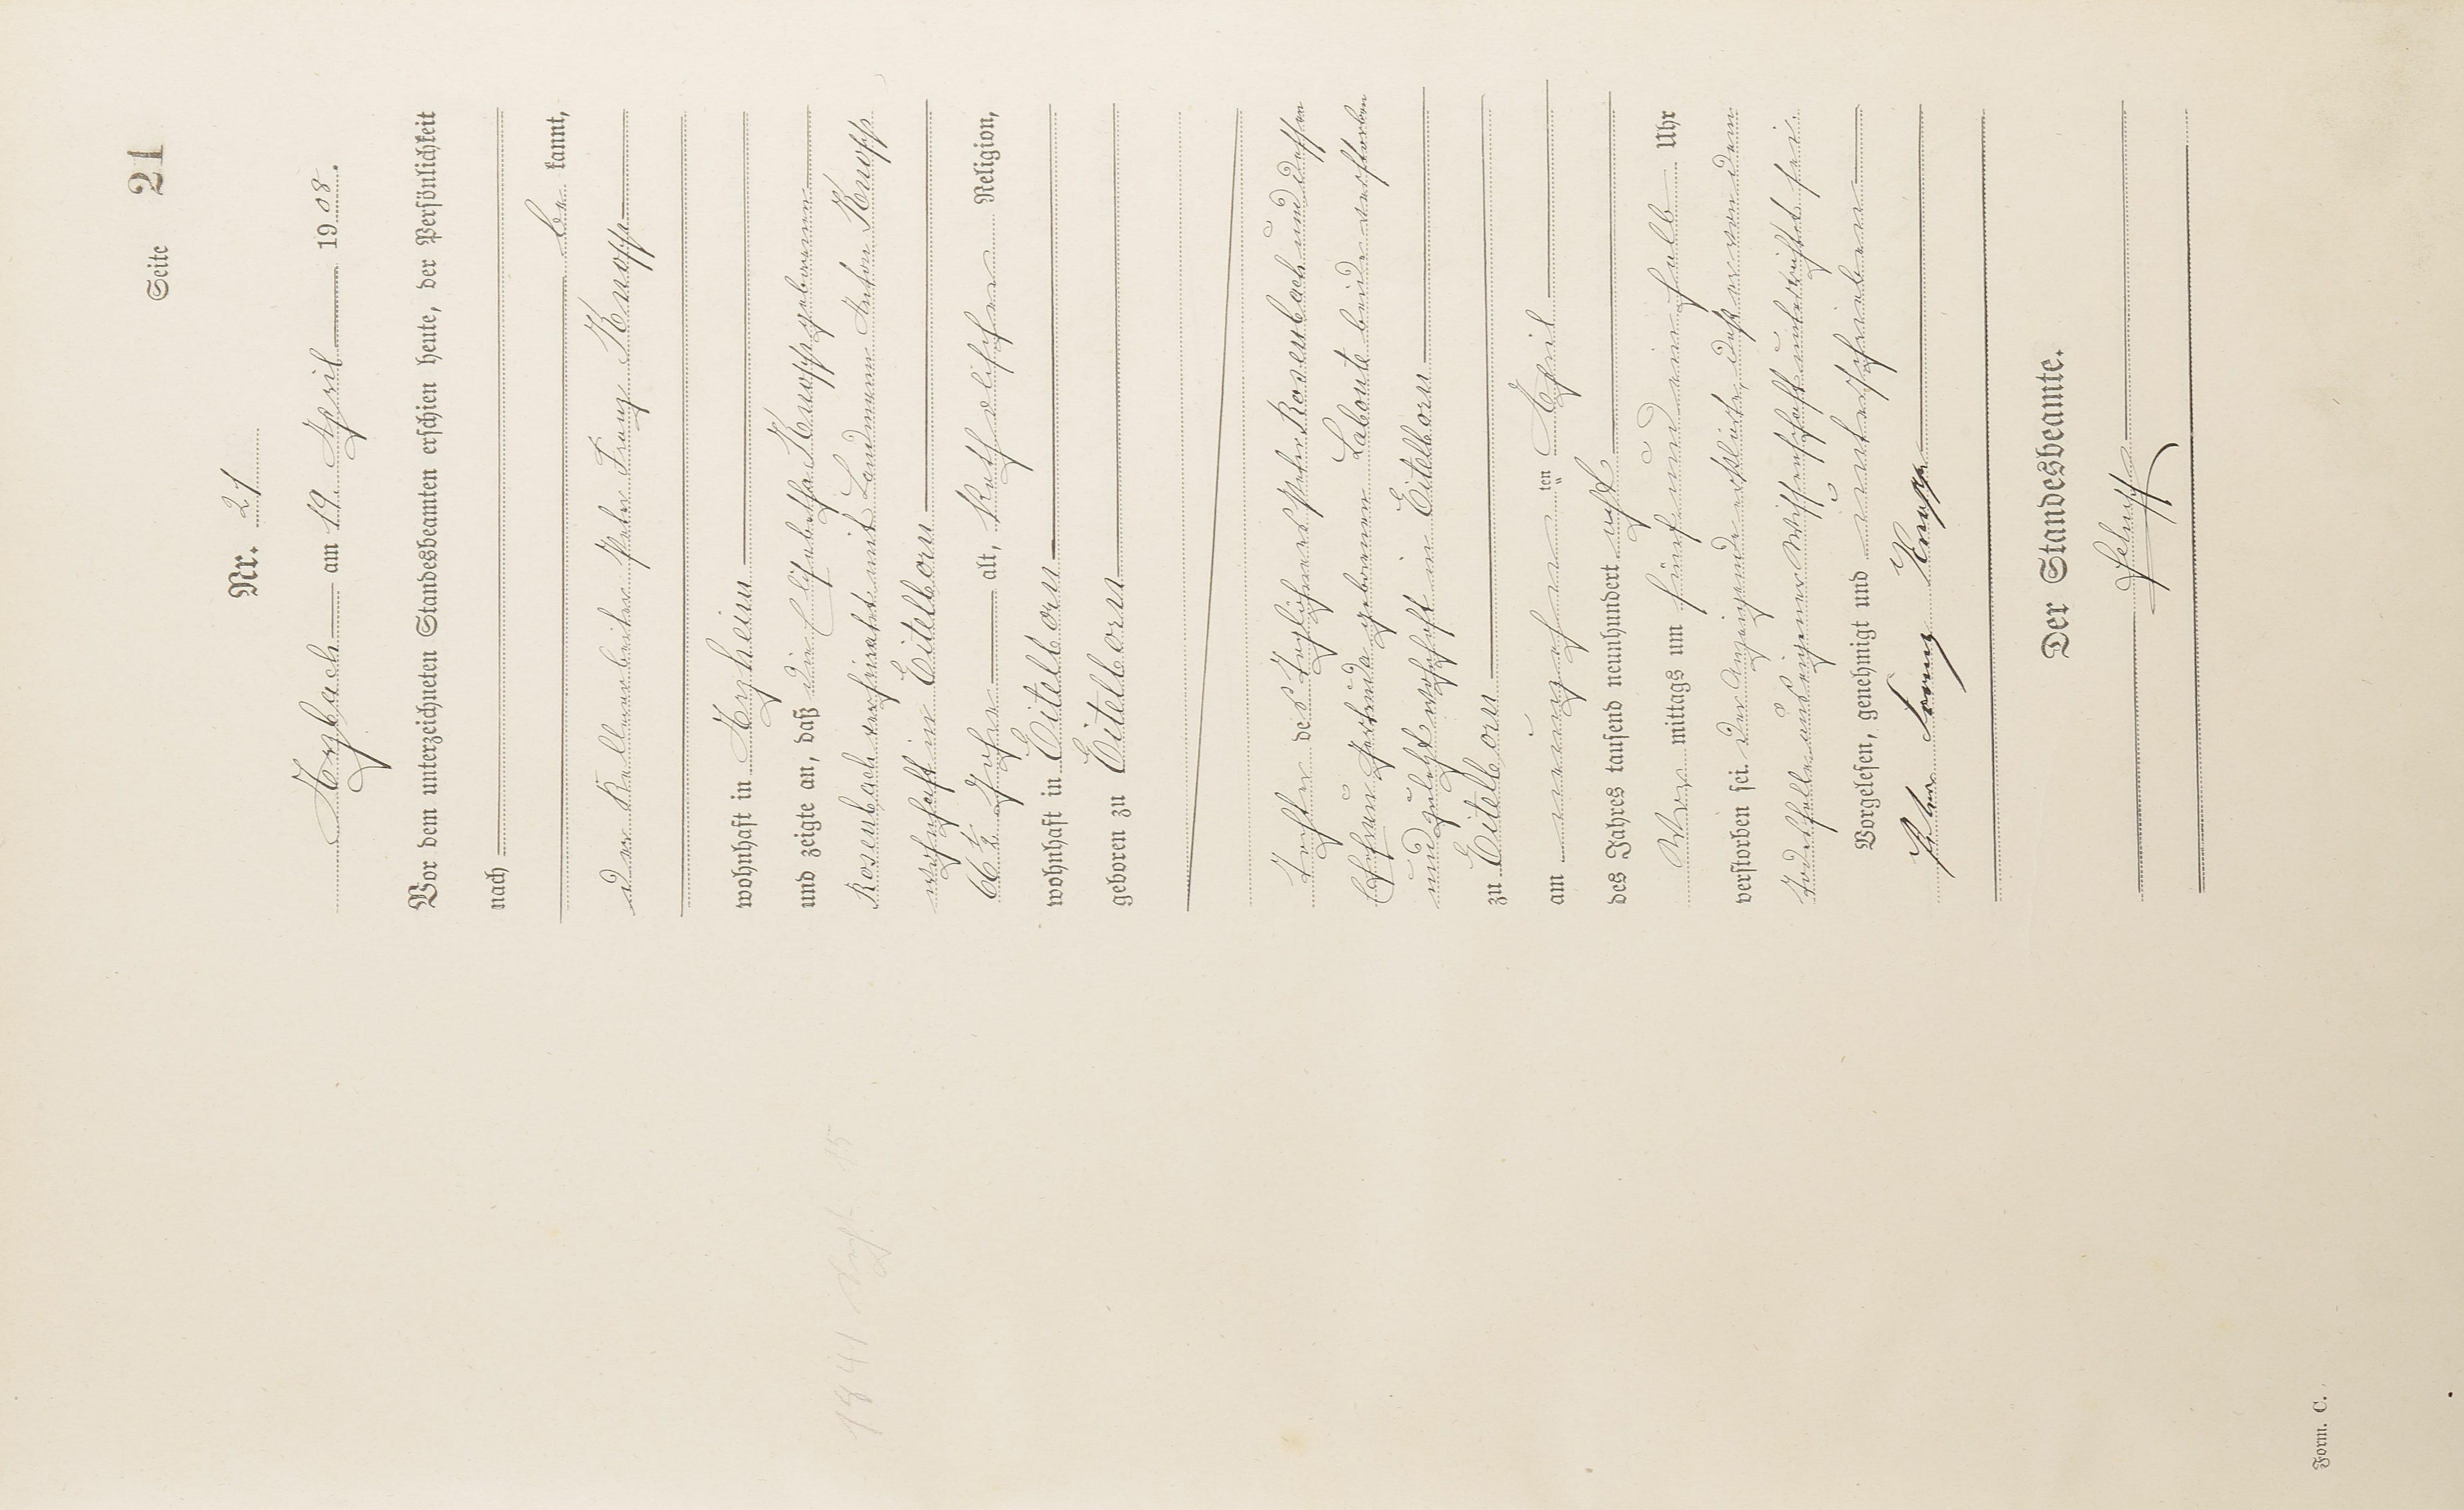 Seite 21
Nr. 21
Arzbach am 19. April 1908.
Vor dem unterzeichneten Standesbeamten erschien heute, der Persönlichkeit
nach
be kannt,
der Peter Franz Knopp
wohnhaft in Arzheim
und zeigte an, daß die Elisabetha Knopp geborene
Rosenbach verheiratet mit Landmann Anton Knopp
wohnhaft in Eitelborn
66 ½ Jahre alt, katholischer Religion,
wohnhaft in Eitelborn
geboren zu Eitelborn
Tochter des Taglöhners Peter Rosenbach und dessen
Ehefrau Gertruda geborene Labonte beide verstorben
und zuletzt wohnhaft in Eitelborn
zu Eitelborn
am neunzehnten April
des Jahres tausend neunhundert acht
Vor mittags um fünf und ein halb Uhr
verstorben sei. Der Anzeigende erklärte, daß er von dem
Todesfalle aus eigener Wissenschaft unterrichtet sei.
Vorgelesen, genehmigt und unterschrieben
Peter Franz Knopp
Der Standesbeamte.
1841 15
Form. C.